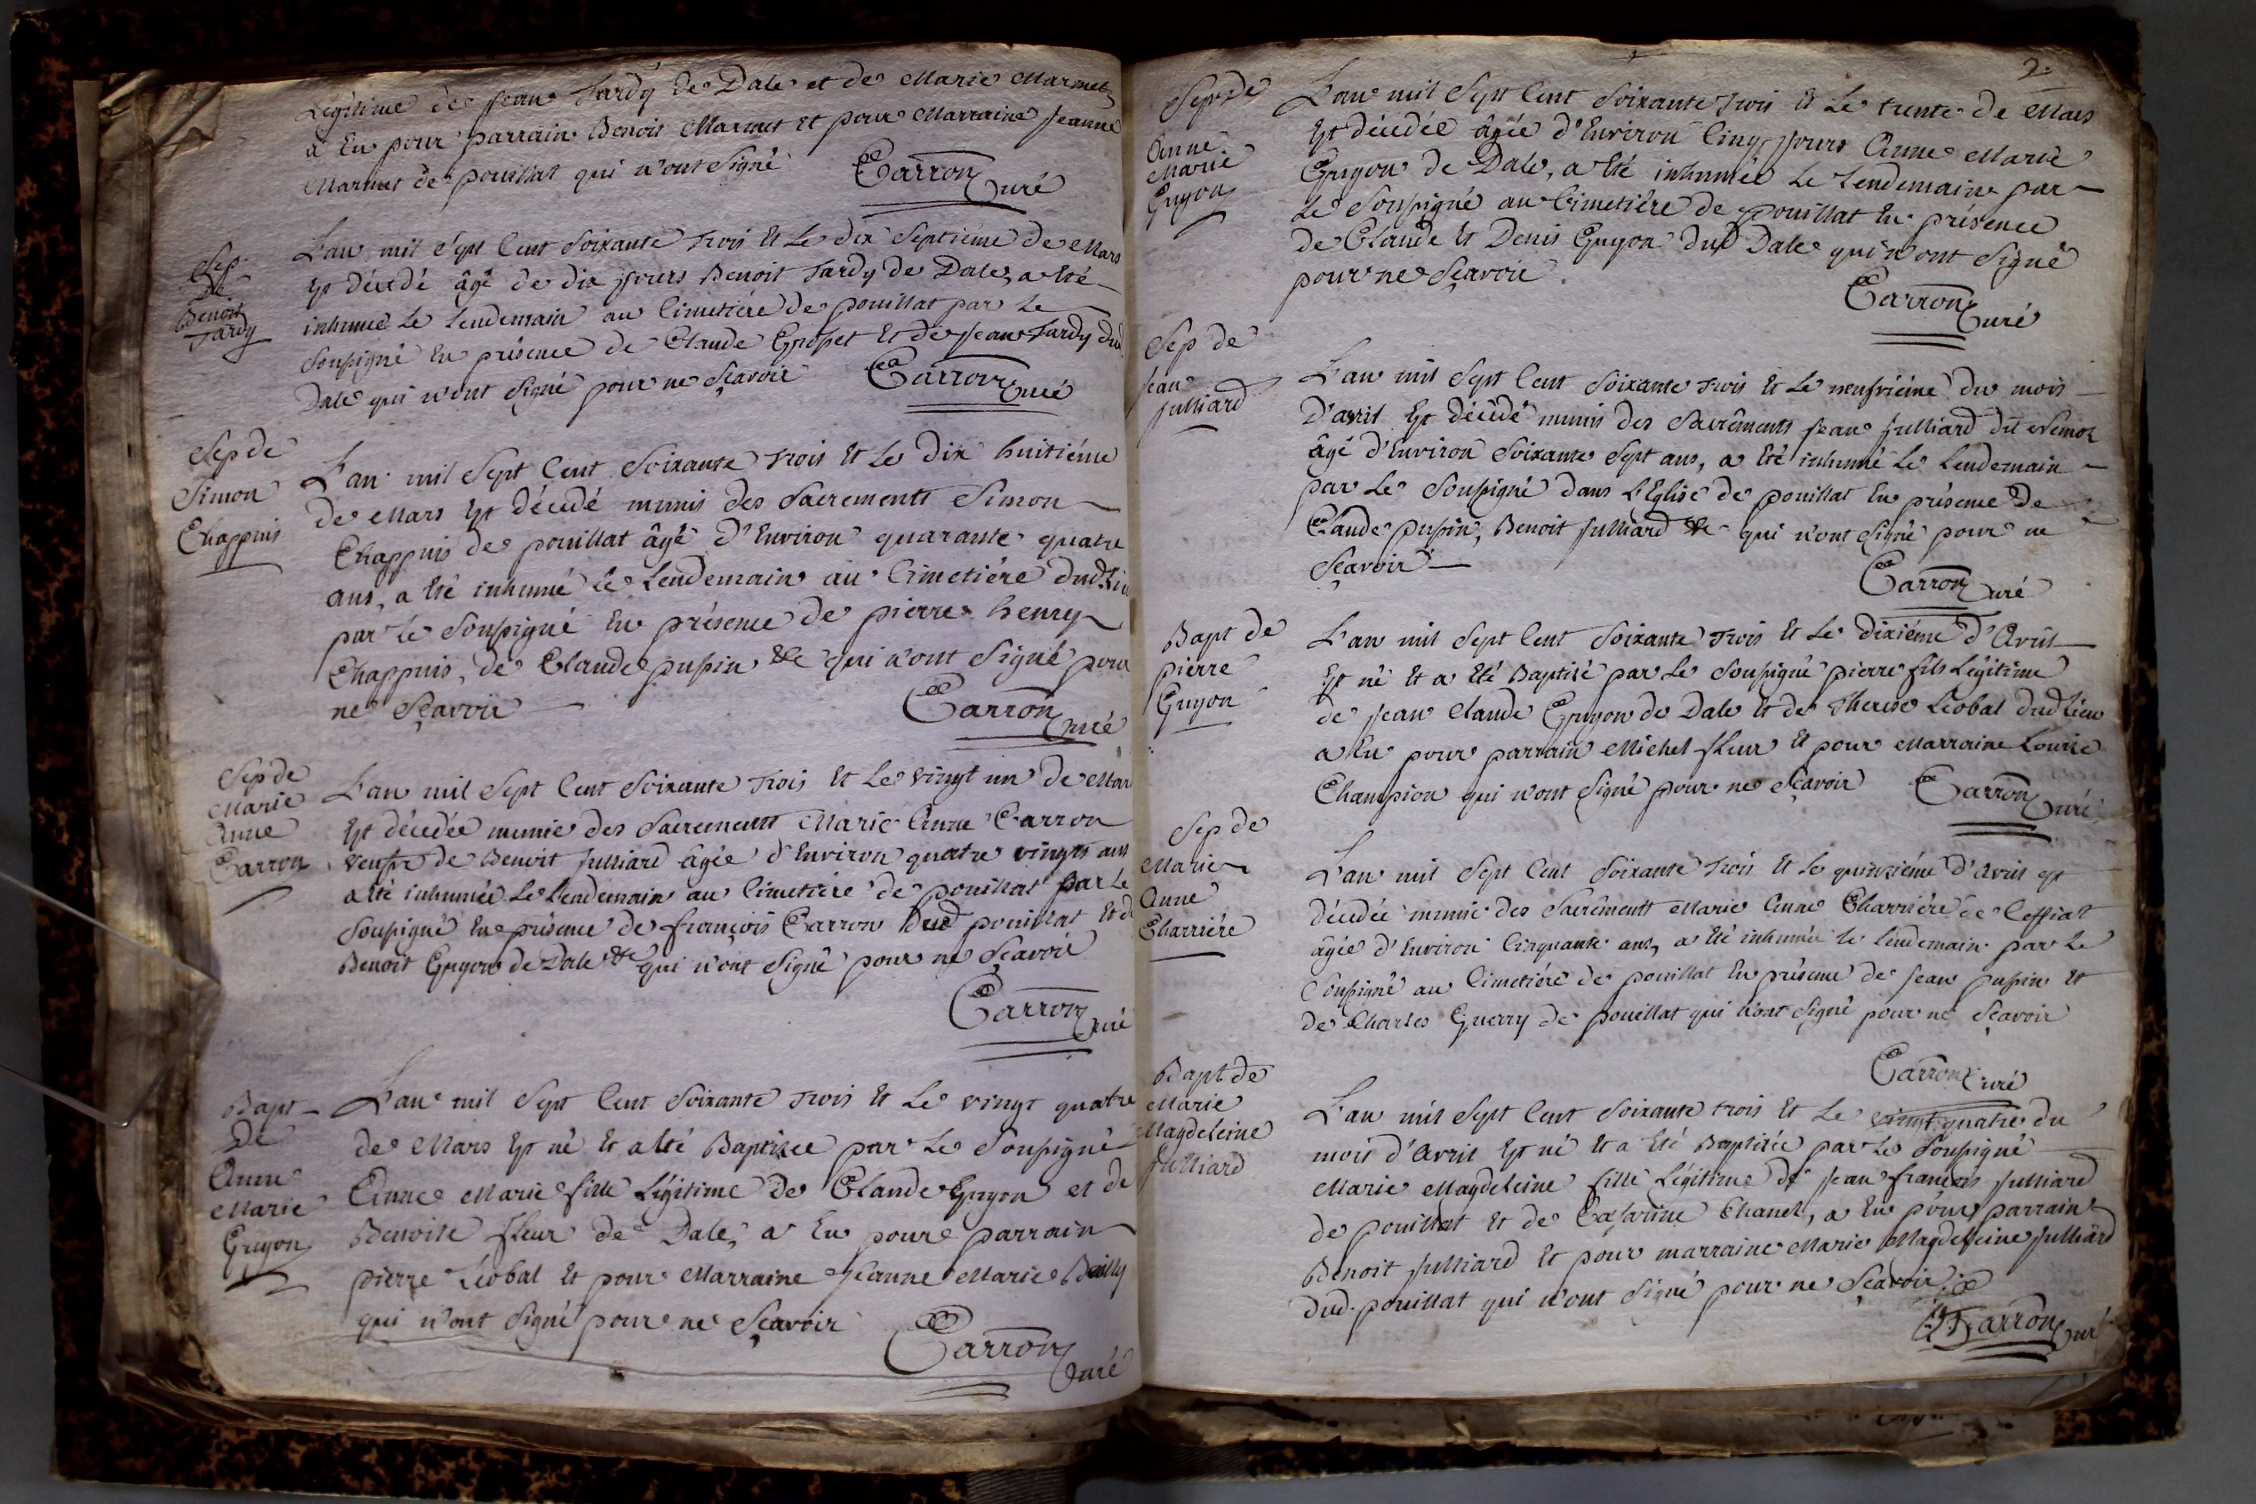 Légitime de Jean Tardy de Dale et de Marie Marmet,
a Eu pour parrain Benoit Marmet et pour Marraine Jeanne
Marmet de pouillat qui n'ont signé
Carron Curé
Sep.
de
Benoit
Tardy
L'an mil sept Cent Soixante Trois Et Le dix Septiéme de Mars
Est décedé âgé de dix jours Benoit Tardy de Dale, a Eté
inhumé Le Lendemain au Cimetiére de pouillat par Le
Soussigné En présence de Claude Grospet Et de Jean Tardy dud
Dale qui n'ont signé pour ne Sçavoir
Carron Curé
Sep de
Simon
Chappuis
L'an mil Sept Cent Soixante Trois Et Le Dix huitiéme
de Mars Est décedé munis des Sacrements Simon
Chappuis de pouillat âgé d'Environ quarante quatre
ans, a Eté inhumé Le Lendemain au Cimetiére dud. Lieu
par Le Soussigné En présence de pierre henry
Chappuis, de Claude pupin &c qui n'ont Signé pour
ne Sçavoir
Carron Curé
Sep de
Marie
Anne
Carron
L'an mil Sept Cent Soixante Trois Et Le vingt un de Mars
Est décedée munie des Sacrements Marie Anne Carron
veufve de Benoit Julliard âgée d'Environ quatre vingts ans
a Eté inhumée Le Lendemain au Cimetiére de pouillat par Le
Soussigné En présence de françois Carron dud pouillat Et de
Benoit Guyon de Dale &c qui n'ont signé pour ne Sçavoir
Carron Curé
Bapt
De
Anne
Marie
Guyon
L'an mil Sept Cent Soixante Trois Et Le vingt quatre
de Mars Est né Et a Eté Baptisée par Le Soussigné
Anne Marie fille Légitime de Claude Guyon et de
Benoite fleur de Dale, a Eu pour parrain
pierre Léobal Et pour Marraine Jeanne Marie Bailly
qui n'ont Signé pour ne Sçavoir
Carron Curé
2.
Sep. de
Anne
Marie
Guyon
L'an mil Sept Cent Soixante Trois Et Le trente de Mars
Est décedée âgée d'Environ Cinq jours Anne Marie
Guyon de Dale, a Eté inhumée Le Lendemain par
Le Soussigné au Cimetiére de pouillat En présence
de Claude Et Denis Guyon dud Dale qui n'ont Signé
pour ne Sçavoir
Carron Curé
Sep de
Jean
Julliard
L'an mil Sept Cent Soixante Trois Et Le neufviéme du mois
D'avril Est décedé munis des Sacréments Jean Julliard dit
âgé d'Environ Soixante Sept ans, a Eté inhumé Le Lendemain
par Le Soussigné dans L'Eglise de pouillat En présence De
Claude pupin, Benoit Julliard &c qui n'ont Signé pour ne
Sçavoir
Carron Curé
Bapt de
pierre
Guyon
L'an mil Sept Cent Soixante Trois Et Le dixiéme d'Avril
Est né Et a Eté Baptisé par Le Soussigné pierre fils Légitime
de Jean Claude Guyon de Dale Et de Therese Léobal dud Lieu
a Eu pour parrain Michel fleur Et pour Marraine Louise
Champion qui n'ont Signé pour ne Sçavoir
Carron Curé
Sep de
Marie
Anne
Charriére
L'an mil Sept Cent Soixante Trois Et Le quinziéme d'Avril Est
décedée munie des Sacréments Marie Anne Charriére de Ceffiat
âgée d'Environ Cinquante ans, a Eté inhumée le Lendemain par Le
Soussigné au Cimetiére de pouillat En présence de Jean pupin Et
de Charles Guerry de pouillat qui n'ont Signé pour ne Sçavoir
Carron Curé
Bapt de
Marie
Magdeleine
Julliard
L'an mil Sept Cent Soixante trois Et Le vingt quatre du
mois d'Avril Est né Et a Eté Baptisée par Le Soussigné
Marie Magdeleine fille Légitime de Jean françois Julliard
de pouillat Et de Catarine Chanel, a Eu pour parrain
Benoit Julliard Et pour marraine Marie Magdeleine Julliard
dud. pouillat qui n'ont Signé pour ne Sçavoir
Carron Curé